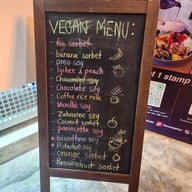 VEGAN MENU:
fig sorbet
banana sorbet
oreo soy
lychee & peach
Chocomint sorbet
Chocolate soy
Coffee rice milk
Vanilla soy
Zabaione soy
Coconut sorbet
panacotta soy
biscottino soy
Pistachio soy
orange sorbet
Passionfruit sorbet
1 stamp